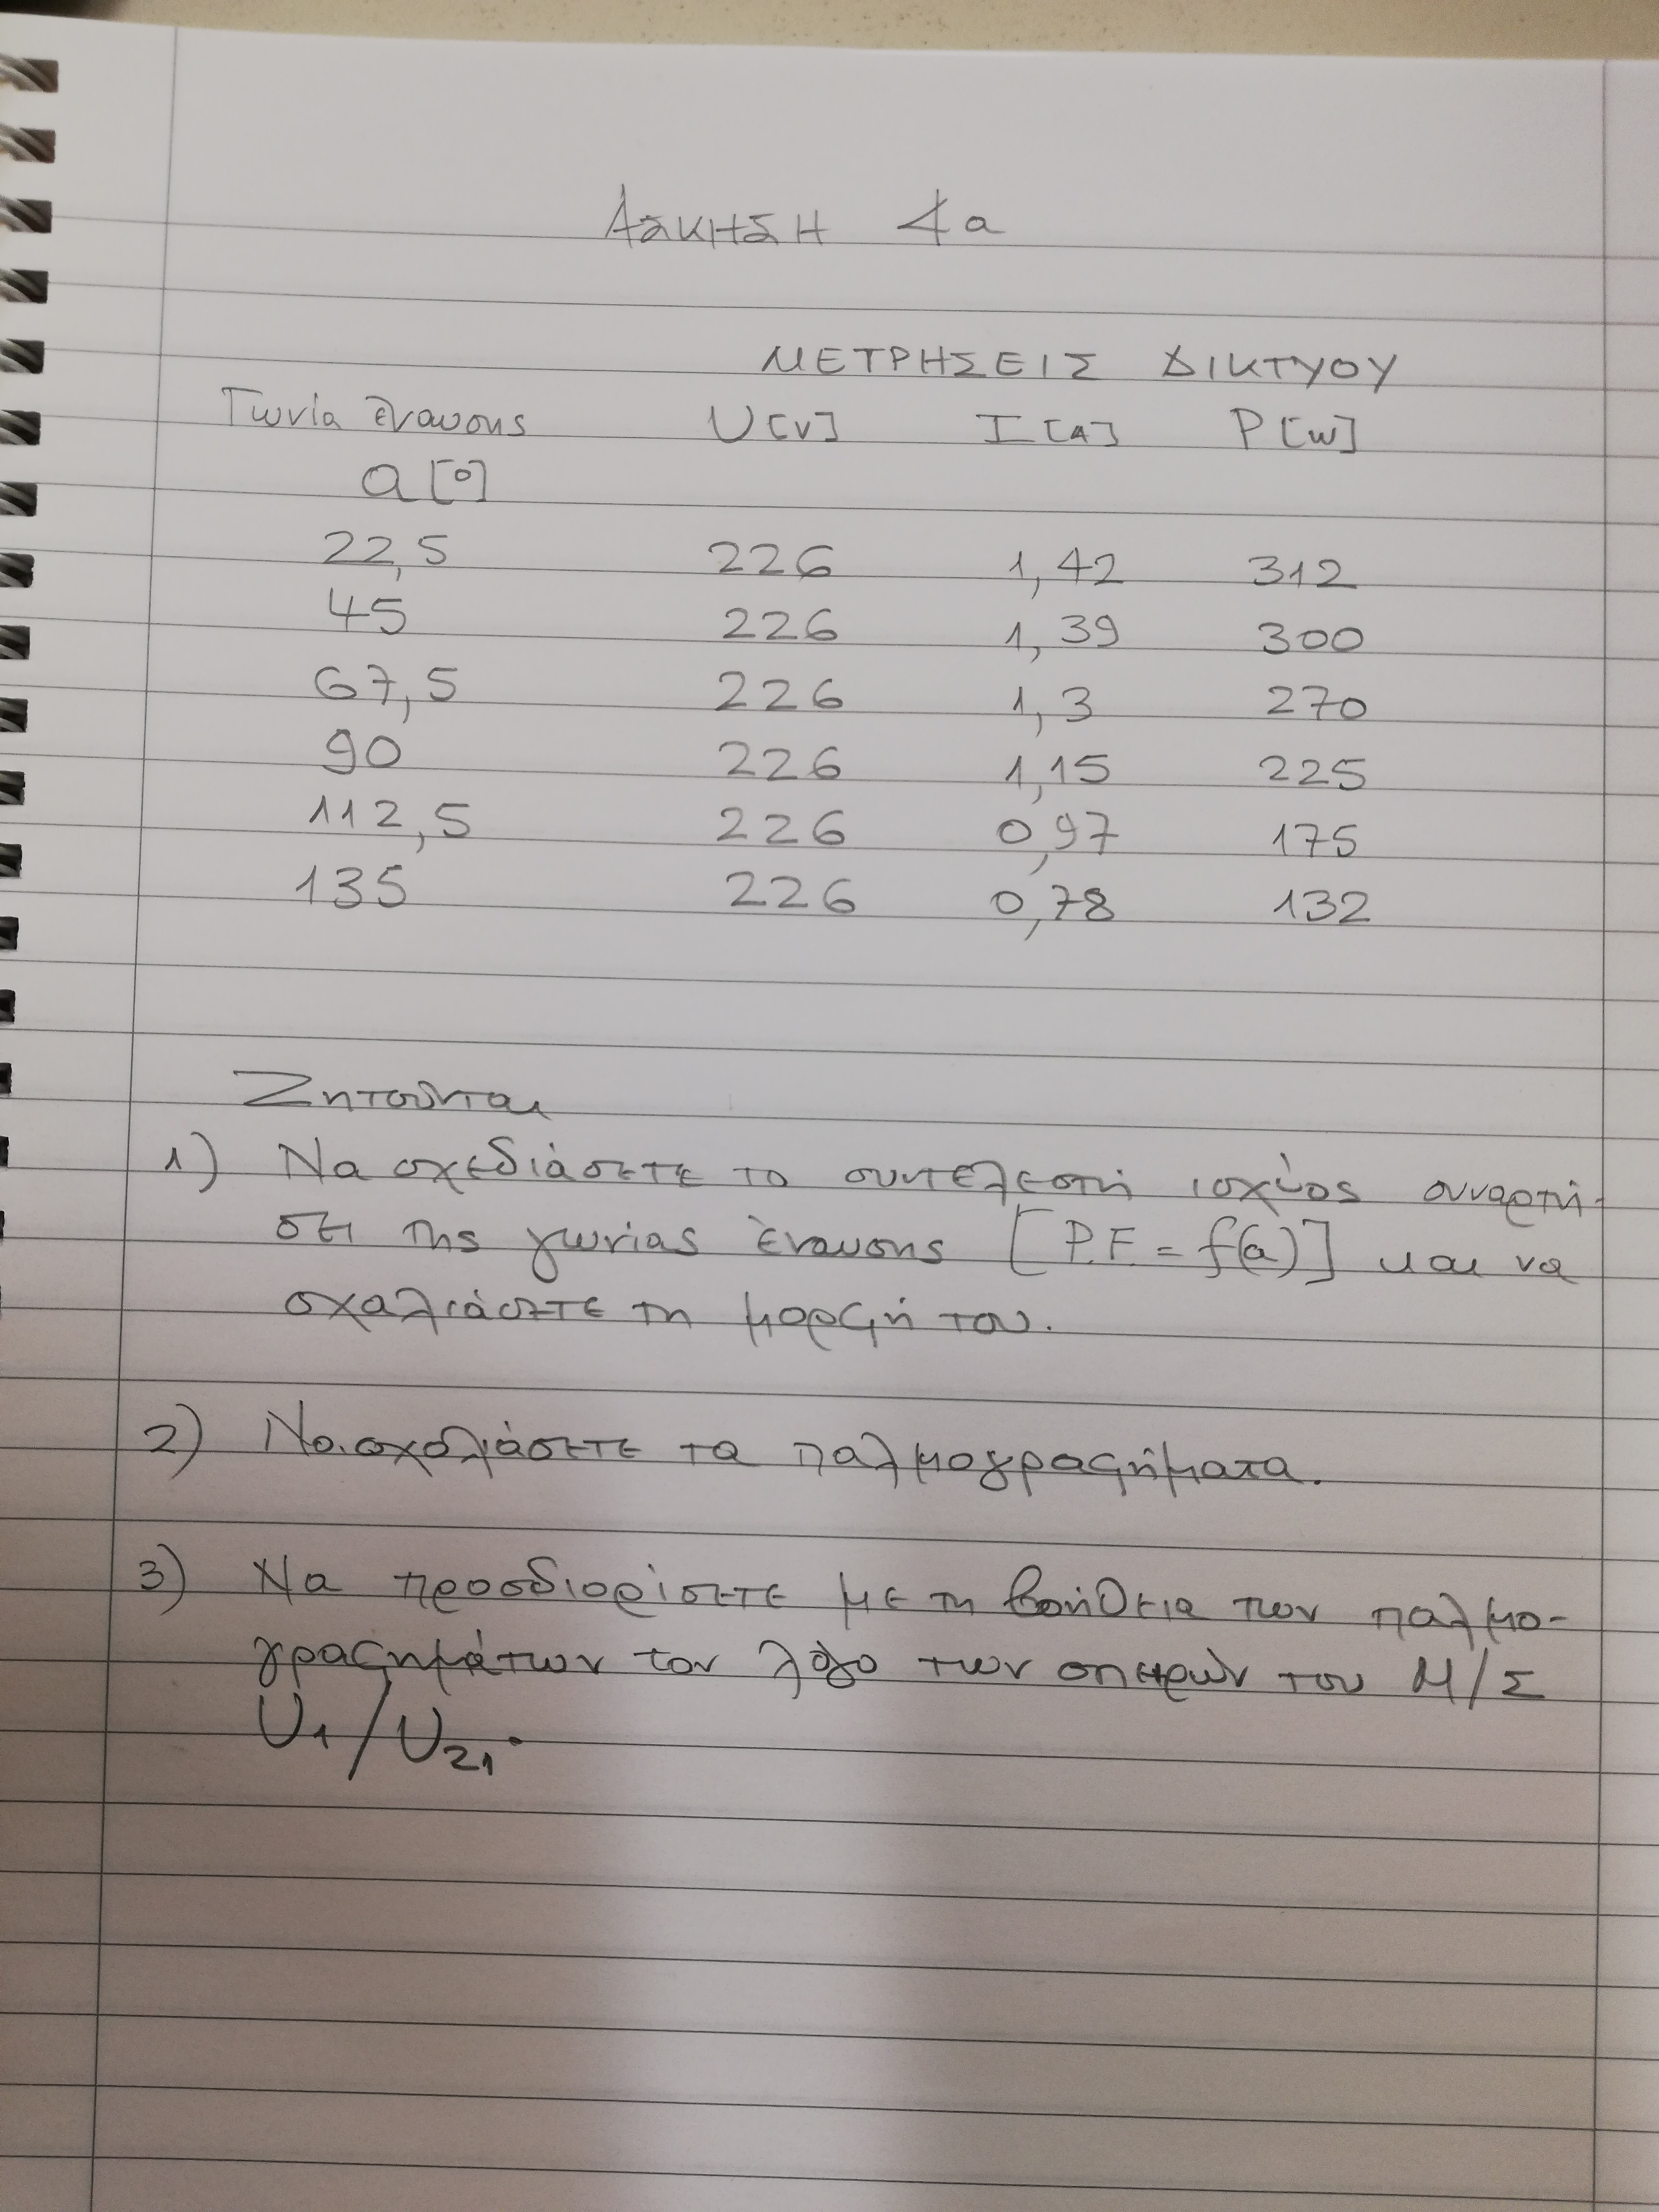 ΑΣΚΗΣΗ 4α
ΜΕΤΡΗΣΕΙΣ ΔΙΚΤΥΟΥ
Γωνία έναυσης U[V] I[A] P[W]
α[°]
22,5 226 1,42 312
45 226 1,39 300
67,5 226 1,3 270
90 226 1,15 225
112,5 226 0,97 175
135 226 0,78 132
Ζητούνται
1) Να σχεδιάσετε το συντελεστή ισχύος συναρτή-
σει της γωνίας έναυσης [P.F. = f(a)] και να
σχαλιάσετε τη μορφή του.
2) Να σχολιάσετε τα παλμογραφήματα.
3) Να προσδιορίσετε με τη βοήθεια των παλμο-
γραφημάτων τον λόγο των σπειρών του Μ/Σ
U1/U21.